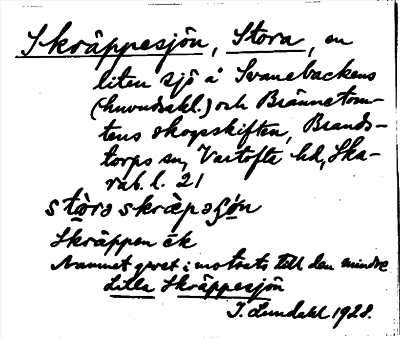 Skräppesjön, Stora, en
liten sjö å Svanebackens
(huvudsakl.) och Brännetom-
tens skogsskiften, Brands-
torps sn, Vartofta hd, Ska-
rab. l. 21
stòrə skræ̀pəʃǿn
Skräppen ék
Namnet givet i motsats till den mindre
Lilla Skräppesjön
J. Lundahl 1928.